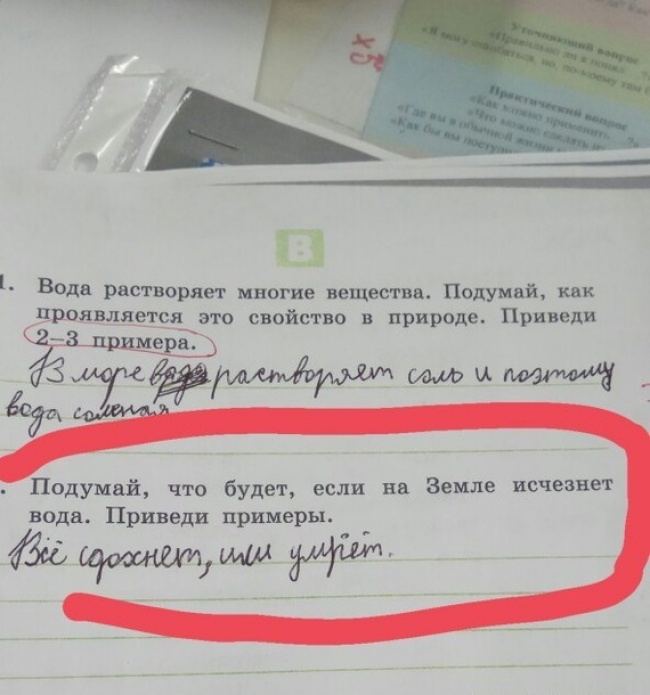 Уточняющий вопрос
«Правильно ли я понял
«Я могу ошибаться, но, по-моему там
Практический вопрос
«Как можно применить
«Что можно сделать
«Где вы в обычной жизни
«Как бы вы поступ
В
1. Вода растворяет многие вещества. Подумай, как
проявляется это свойство в природе. Приведи
2–3 примера.
В море растворяет соль и поэтому
вода соленая
. Подумай, что будет, если на Земле исчезнет
вода. Приведи примеры.
Всё сдохнет, или умрёт.